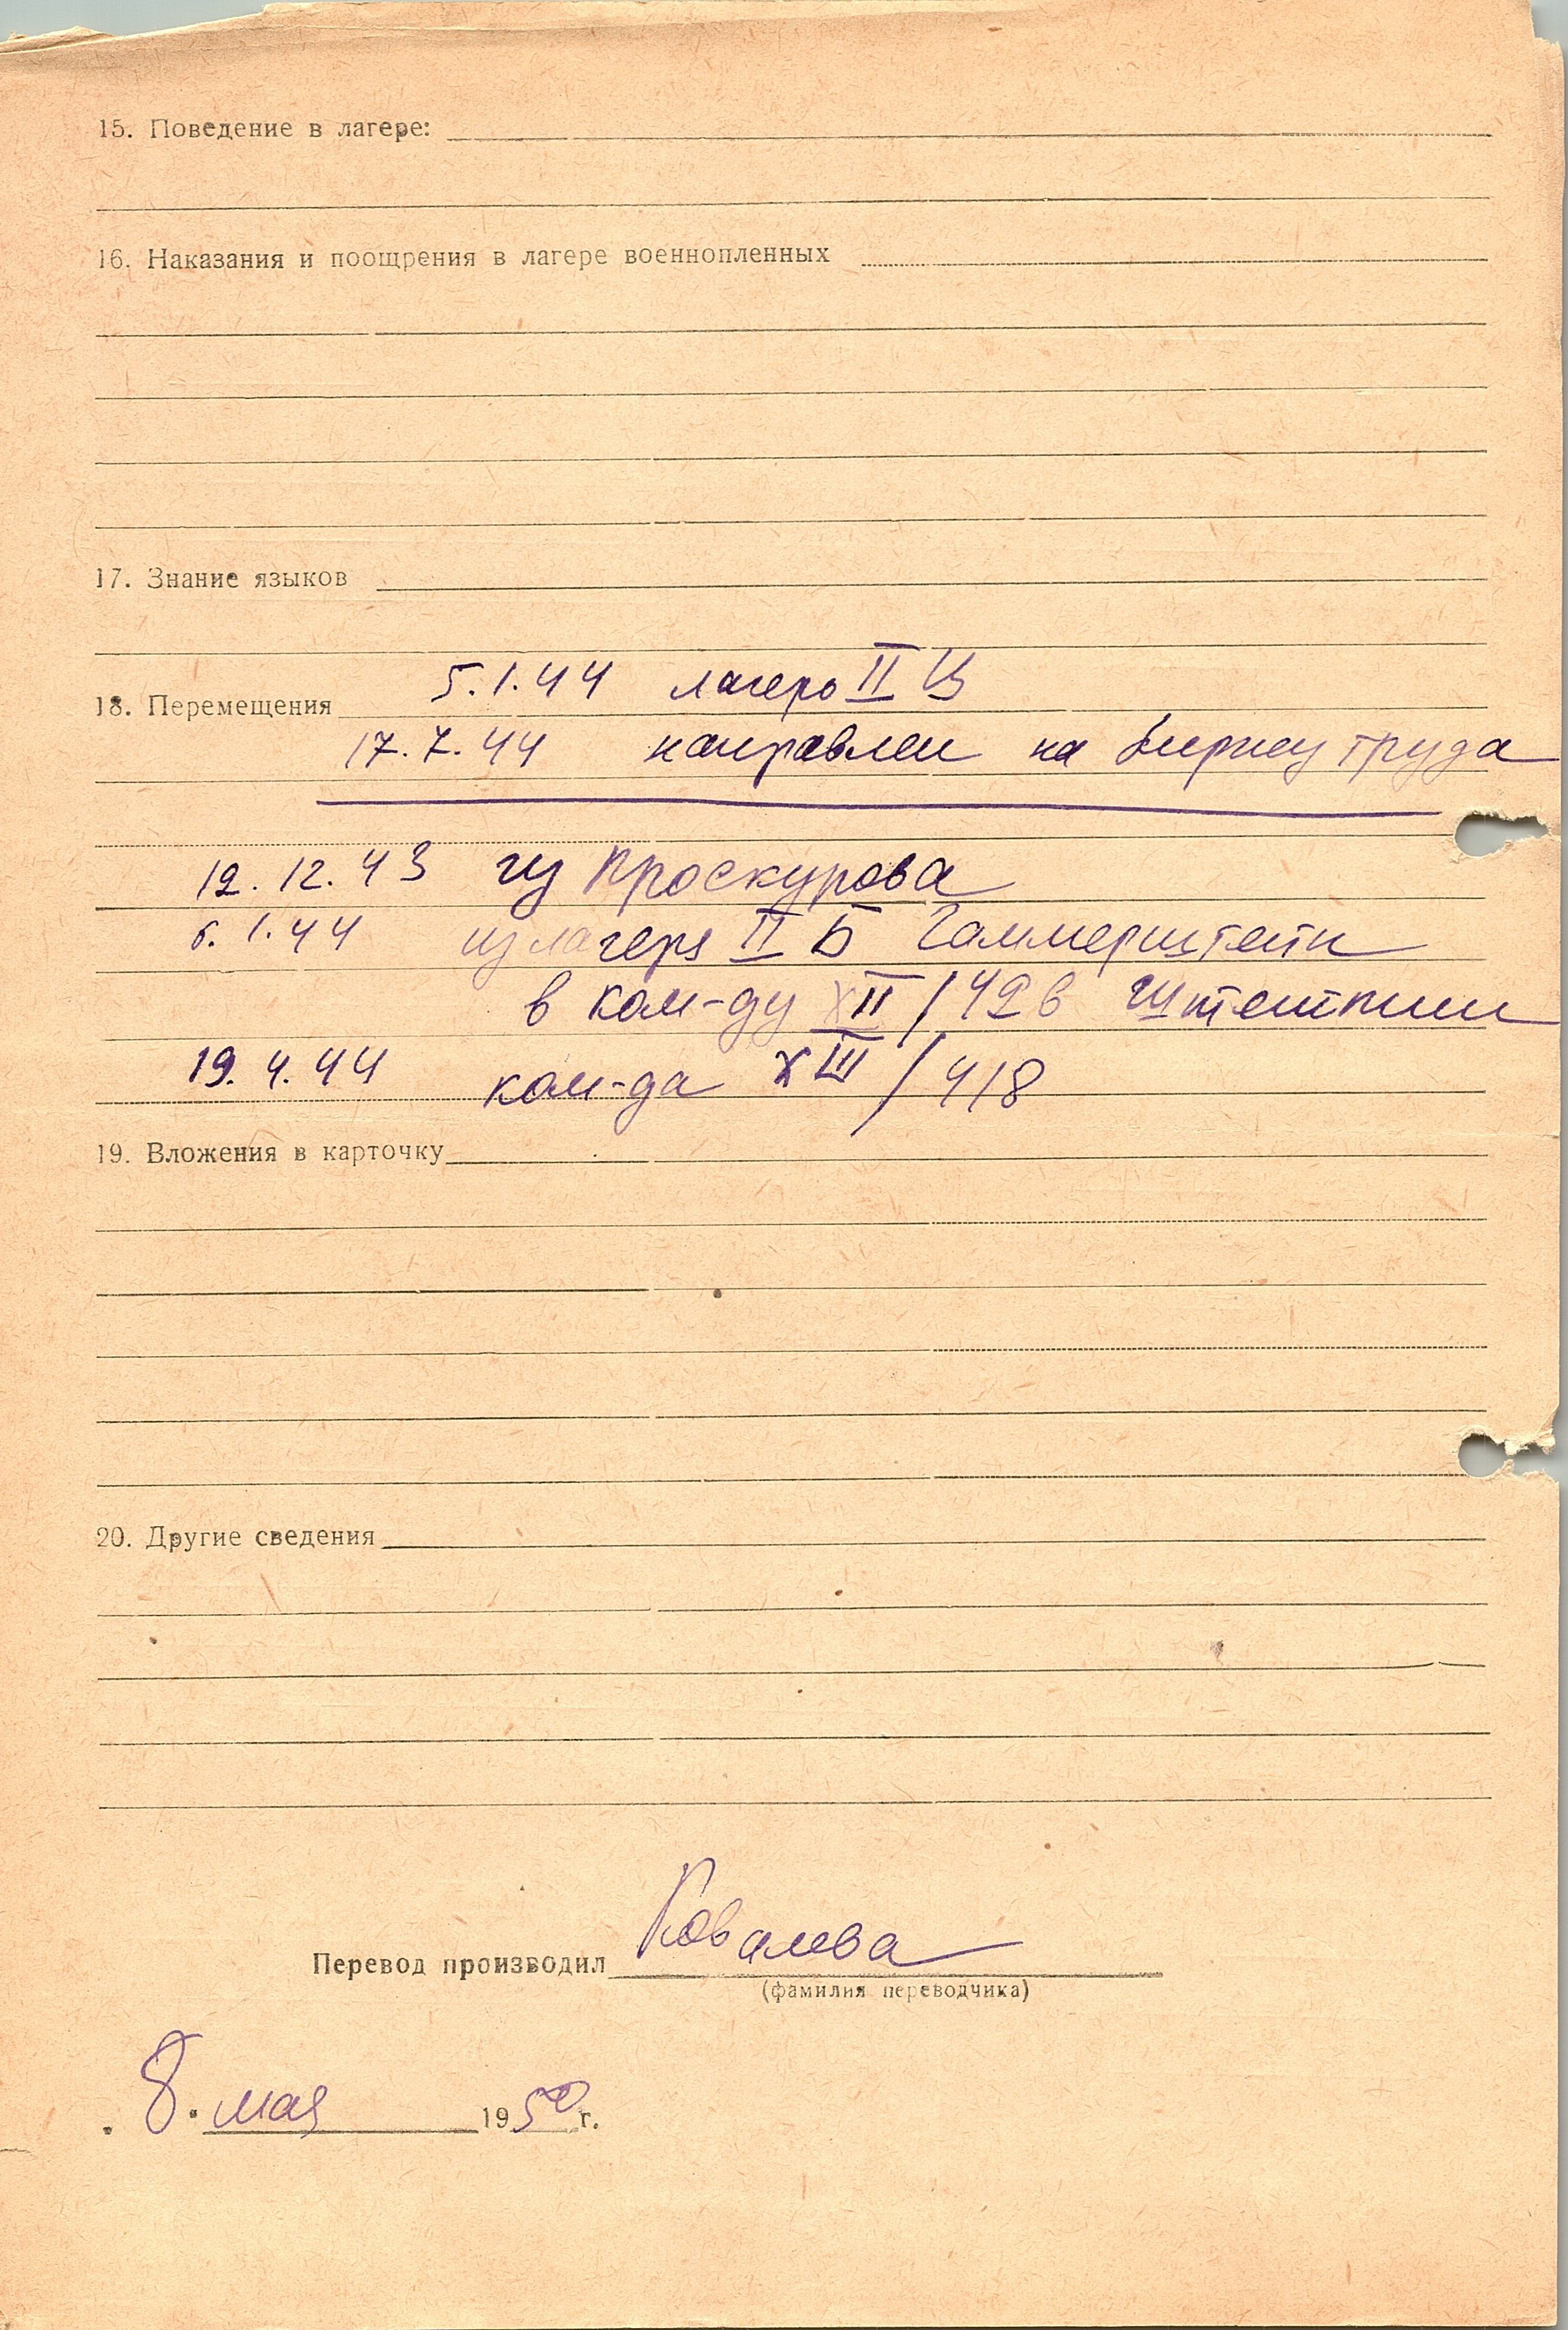 15. Поведение в лагере:
16. Наказания и поощрения в лагере военнопленных
17. Знание языков
5.1.44 лагерь II Ц
18. Перемещения
17.7.44 направлен на биржу труда
12.12.43 из Проскурова
6.1.44 из лагеря II Б Гаммерштейн
в ком-ду XII/42 в Штеттин
19.4.44 ком-да XIII/418
19. Вложения в карточку
20. Другие сведения
Перевод производил Ковалева
(фамилия переводчика)
8. мая 1950 г.